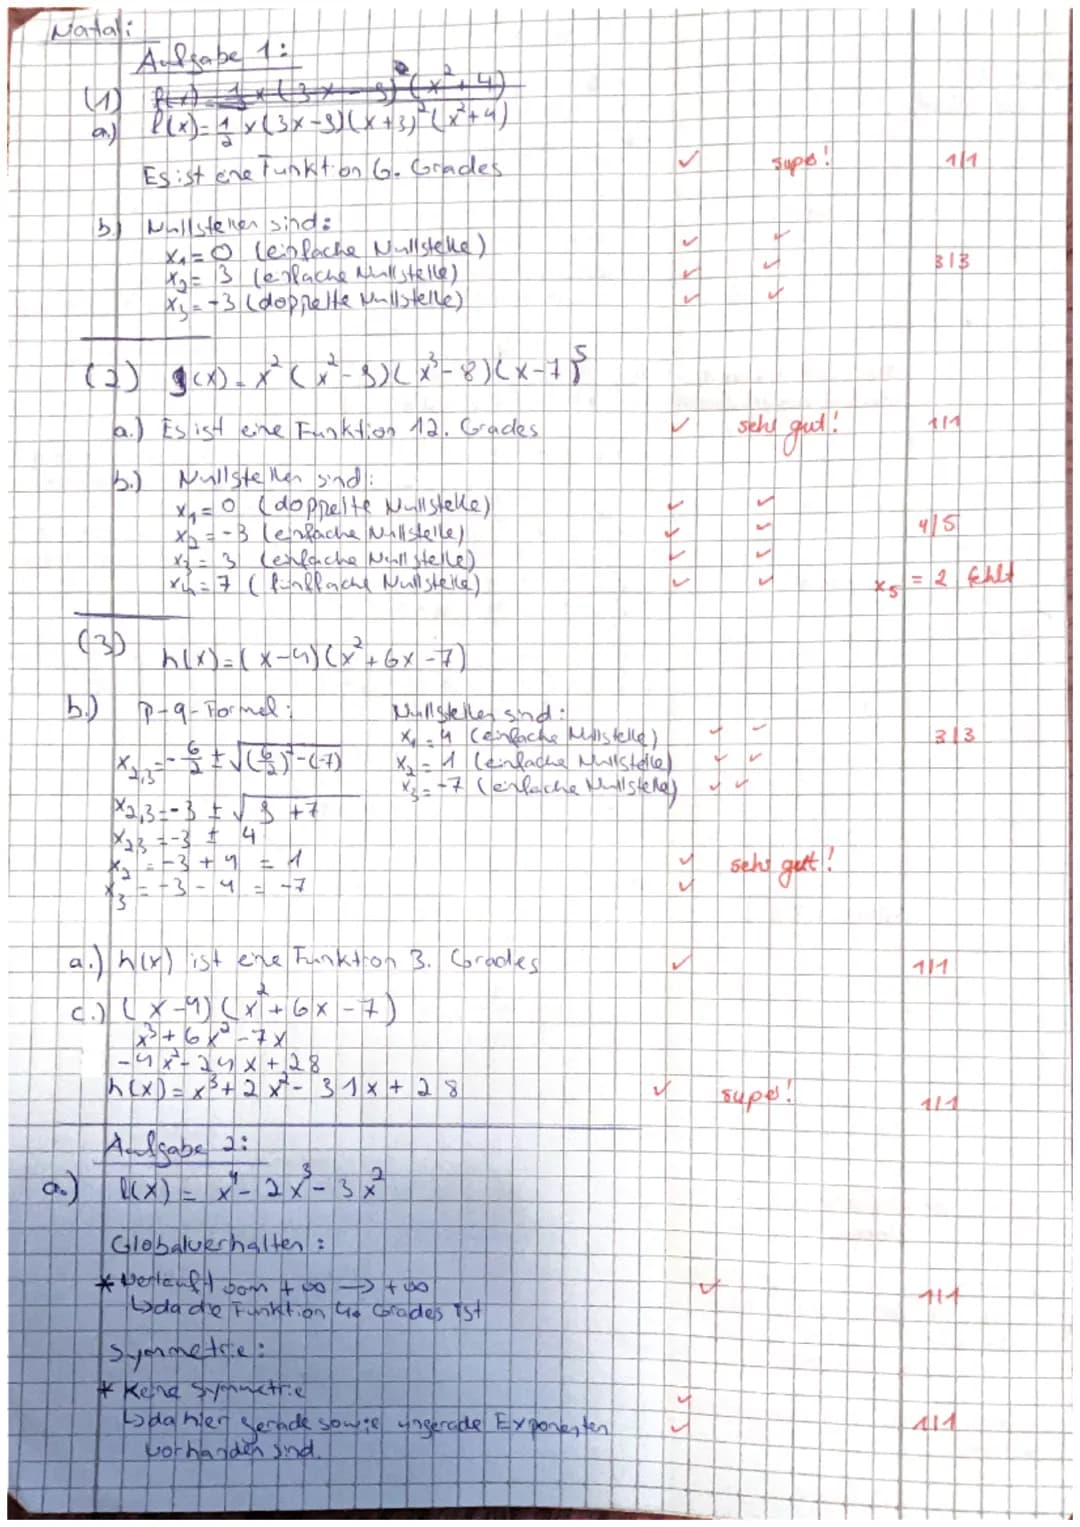 Natali
Aufgabe 1:
(1) f(x) = 1/3 x (3x - 9)² (x² + 4)
a.) f(x) = 1/2 x (3x - 9)(x + 3)² (x² + 4)
Es ist eine Funktion 6. Grades ✓ super! 1/1
b.) Nullstellen sind:
x₁ = 0 (einfache Nullstelle) ✓ ✓
x₂ = 3 (einfache Nullstelle) ✓ ✓ 3/3
x₃ = -3 (doppelte Nullstelle) ✓ ✓
(2) g(x) = x² (x² - 9)(x³ - 8)(x - 7)⁵
a.) Es ist eine Funktion 12. Grades ✓ sehr gut! 1/1
b.) Nullstellen sind:
x₁ = 0 (doppelte Nullstelle) ✓ ✓
x₂ = -3 (einfache Nullstelle) ✓ ✓ 4/5
x₃ = 3 (einfache Nullstelle) ✓ ✓
x₄ = 7 (fünffache Nullstelle) ✓ ✓ x₅ = 2 fehlt
(3) h(x) = (x - 4)(x² + 6x - 7)
b.) p-q-Formel: Nullstellen sind:
x₁ = 4 (einfache Nullstelle) ✓ ✓ 3/3
x₂,₃ = - 6/2 ± √((6/2)² - (-7)) x₂ = 1 (einfache Nullstelle) ✓ ✓
x₃ = -7 (einfache Nullstelle) ✓ ✓
x₂,₃ = -3 ± √9 + 7
x₂,₃ = -3 ± 4
x₂ = -3 + 4 = 1 ✓ sehr gut!
x₃ = -3 - 4 = -7 ✓
a.) h(x) ist eine Funktion 3. Grades ✓ 1/1
c.) (x - 4)(x² + 6x - 7)
x³ + 6x² - 7x
- 4x² - 24x + 28
h(x) = x³ + 2x² - 31x + 28 ✓ super! 1/1
Aufgabe 2:
a.) f(x) = x⁴ - 2x³ - 3x²
Globalverhalten:
* Verläuft vom +∞ → +∞ ✓ 1/1
↳ da die Funktion 4. Grades ist
Symmetrie:
* Keine Symmetrie ✓
↳ da hier gerade sowie ungerade Exponenten ✓ 1/1
vorhanden sind.